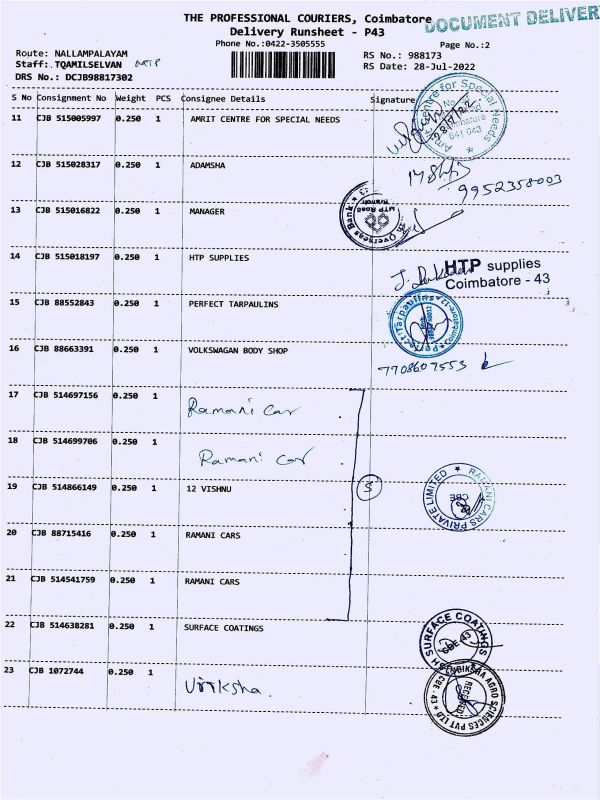 THE PROFESSIONAL COURIERS, Coimbatore
DOCUMENT DELIVER
Delivery Runsheet - P43
Phone No.:0422-3505555
Page No.:2
Route: NALLAMPALAYAM
RS No.: 988173
Staff: TQAMILSELVAN MTP
RS Date: 28-Jul-2022
DRS No.: DCJB98817302
S No Consignment No Weight PCS Consignee Details Signature
11 CJB 515005997 0.250 1 AMRIT CENTRE FOR SPECIAL NEEDS
Centre for Special Needs
641 043
28/7/22
12 CJB 515028317 0.250 1 ADAMSHA
9952358003
13 CJB 515016822 0.250 1 MANAGER
Overseas Bank
MTP ROAD
14 CJB 515018197 0.250 1 HTP SUPPLIES
HTP supplies
Coimbatore - 43
15 CJB 88552843 0.250 1 PERFECT TARPAULINS
Perfect Tarpaulins
16 CJB 88663391 0.250 1 VOLKSWAGAN BODY SHOP
7708607553
17 CJB 514697156 0.250 1 Ramani Car
18 CJB 514699706 0.250 1 Ramani Car
19 CJB 514866149 0.250 1 12 VISHNU
5
RAMANI CARS PRIVATE LIMITED
CBE
20 CJB 88715416 0.250 1 RAMANI CARS
21 CJB 514541759 0.250 1 RAMANI CARS
22 CJB 514638281 0.250 1 SURFACE COATINGS
SURFACE COATINGS
CBE-43
23 CJB 1072744 0.250 1 Vriksha
VRIKSHA AGRO SCIENCES PVT LTD
CBE-43
RECEIVED